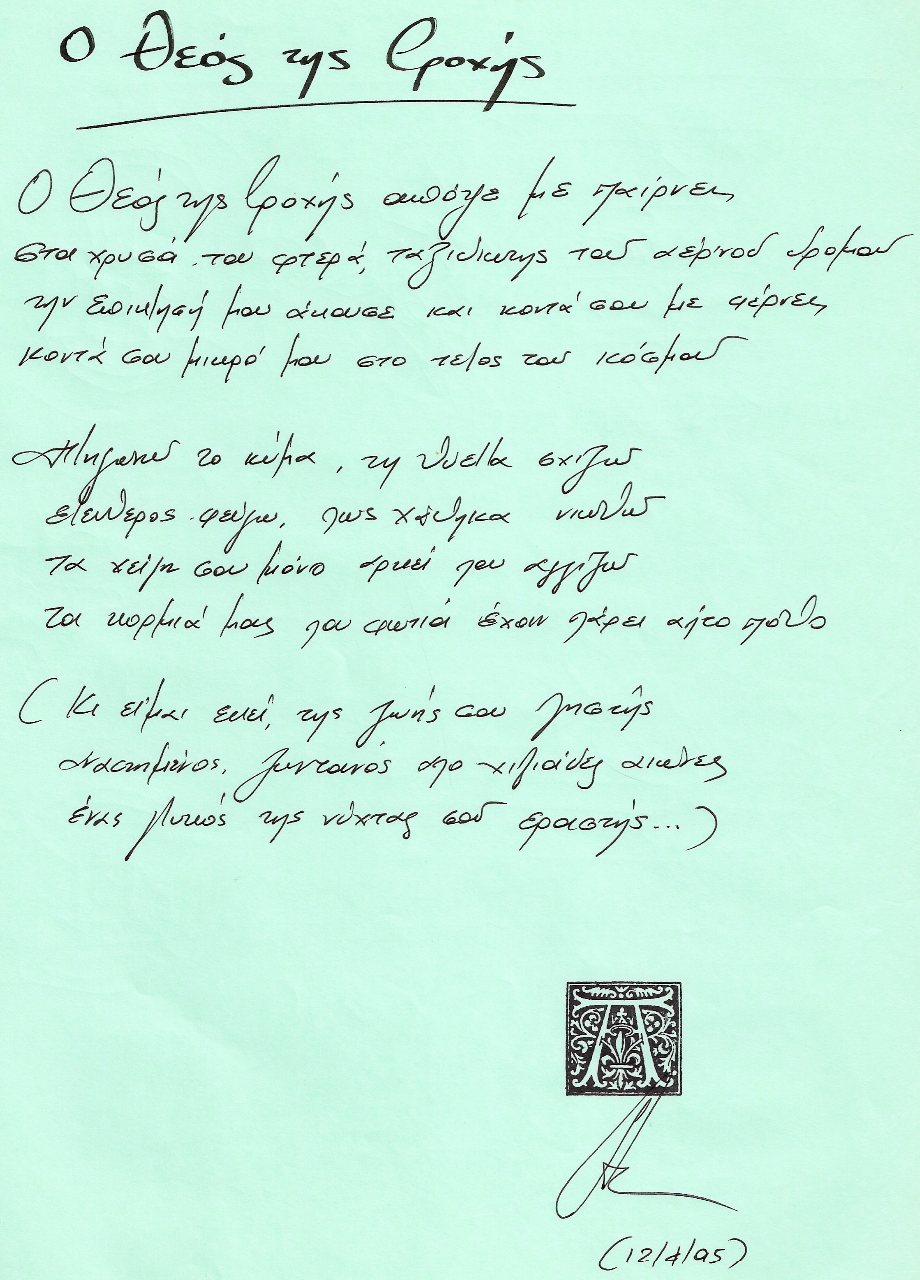 Ο Θεός της Βροχής
Ο Θεός της Βροχής απόψε με παίρνει
στα χρυσά του φτερά, ταξιδιώτης του αέρινου δρόμου
την επίκλησή μου άκουσε και κοντά σου με φέρνει
κοντά σου μικρό μου στο τέλος του κόσμου
το κύμα, τη θύελλα σχίζω
ελεύθερος φεύγω, πως χάθηκα νιώθω
τα χείλη σου μόνο αρκεί που αγγίζω
τα κορμιά μας που φωτιά έχουν πάρει απ' το πόθο
( Κι είμαι εκεί, της ζωής σου ληστής
αναστημένος, ζωντανός από χιλιάδες αιώνες
ένας της νύχτας σου εραστής... )
A
(12/4/95)